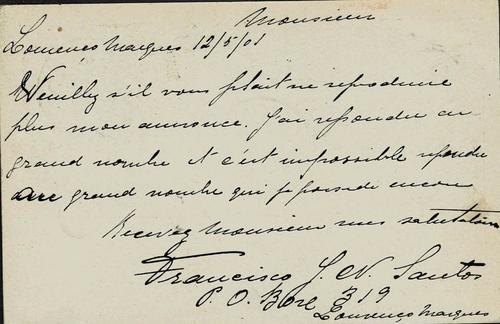 Monsieur
Lourenço Marques 12/5/01
Veuillez s'il vous plait ne reproduire
plus mon annonce. J'ai repondu au
grand nombre et c'est impossible repondre
au grand nombre qui je possede encore
Recevez Monsieur mes salutations
Francisco J. N. Santos
P. O. Box 319
Lourenço Marques